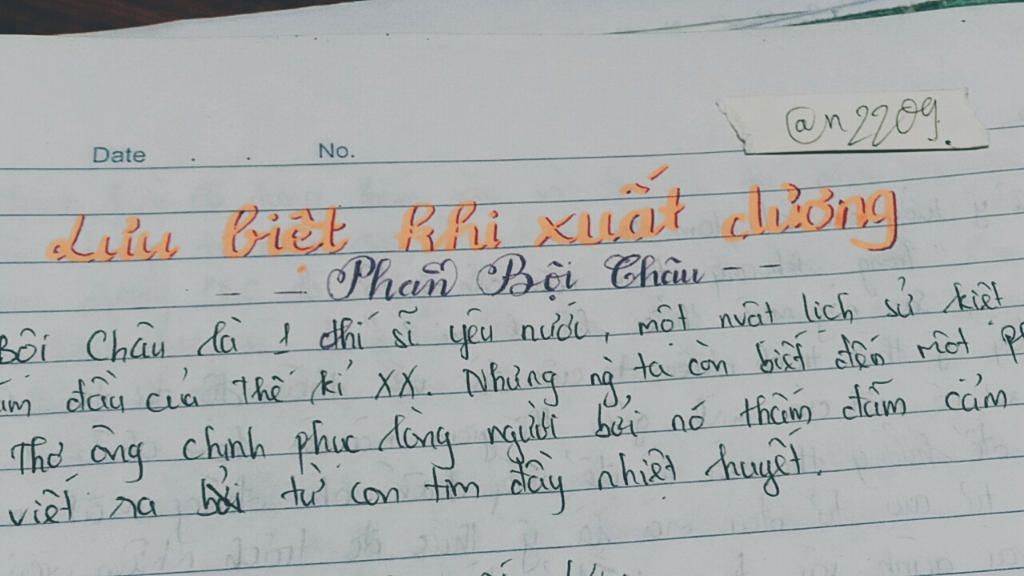 @n2209.
Date . . No.
Lưu biệt khi xuất dương
- - Phan Bội Châu - -
Bội Châu là 1 chí sĩ yêu nước, một nvật lịch sử kiệt
đầu của thế kỉ XX. Nhưng ng ta còn biết đến một
Thơ ông chinh phục lòng người bởi nó thấm đẫm cảm
viết ra bởi từ con tim đầy nhiệt huyết.